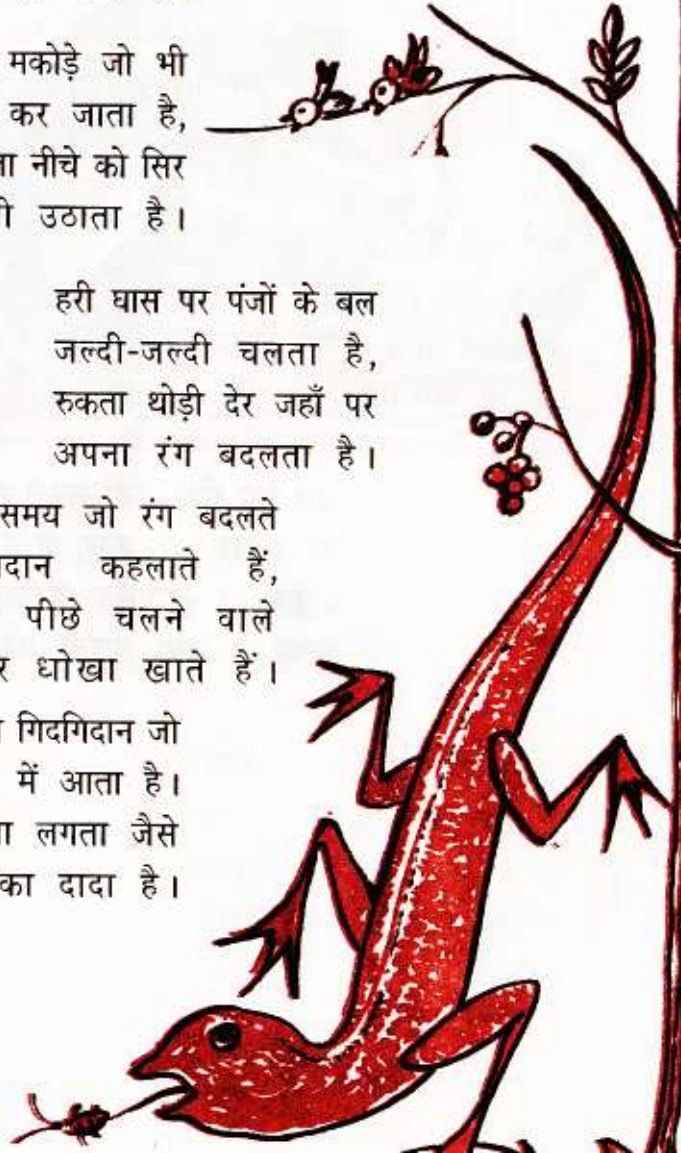 मकोड़े जो भी
कर जाता है,
नीचे को सिर
उठाता है।
हरी घास पर पंजों के बल
जल्दी-जल्दी चलता है,
रुकता थोड़ी देर जहाँ पर
अपना रंग बदलता है।
समय जो रंग बदलते
कहलाते हैं,
पीछे चलने वाले
धोखा खाते हैं।
गिदगिदान जो
में आता है।
लगता जैसे
का दादा है।